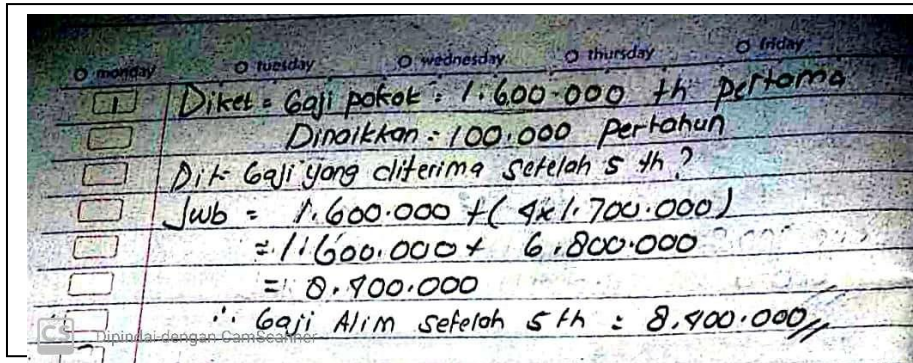 monday tuesday wednesday thursday friday
1 Diket = Gaji pokok : 1.600.000 th pertama
Dinaikkan = 100.000 pertahun
Dit- Gaji yang diterima setelah 5 th ?
Jwb = 1.600.000 + ( 4x1.700.000 )
= 1.600.000 + 6.800.000
= 8.400.000
∴ Gaji Alim setelah 5 th : 8.400.000 //
CS Dipindai dengan CamScanner